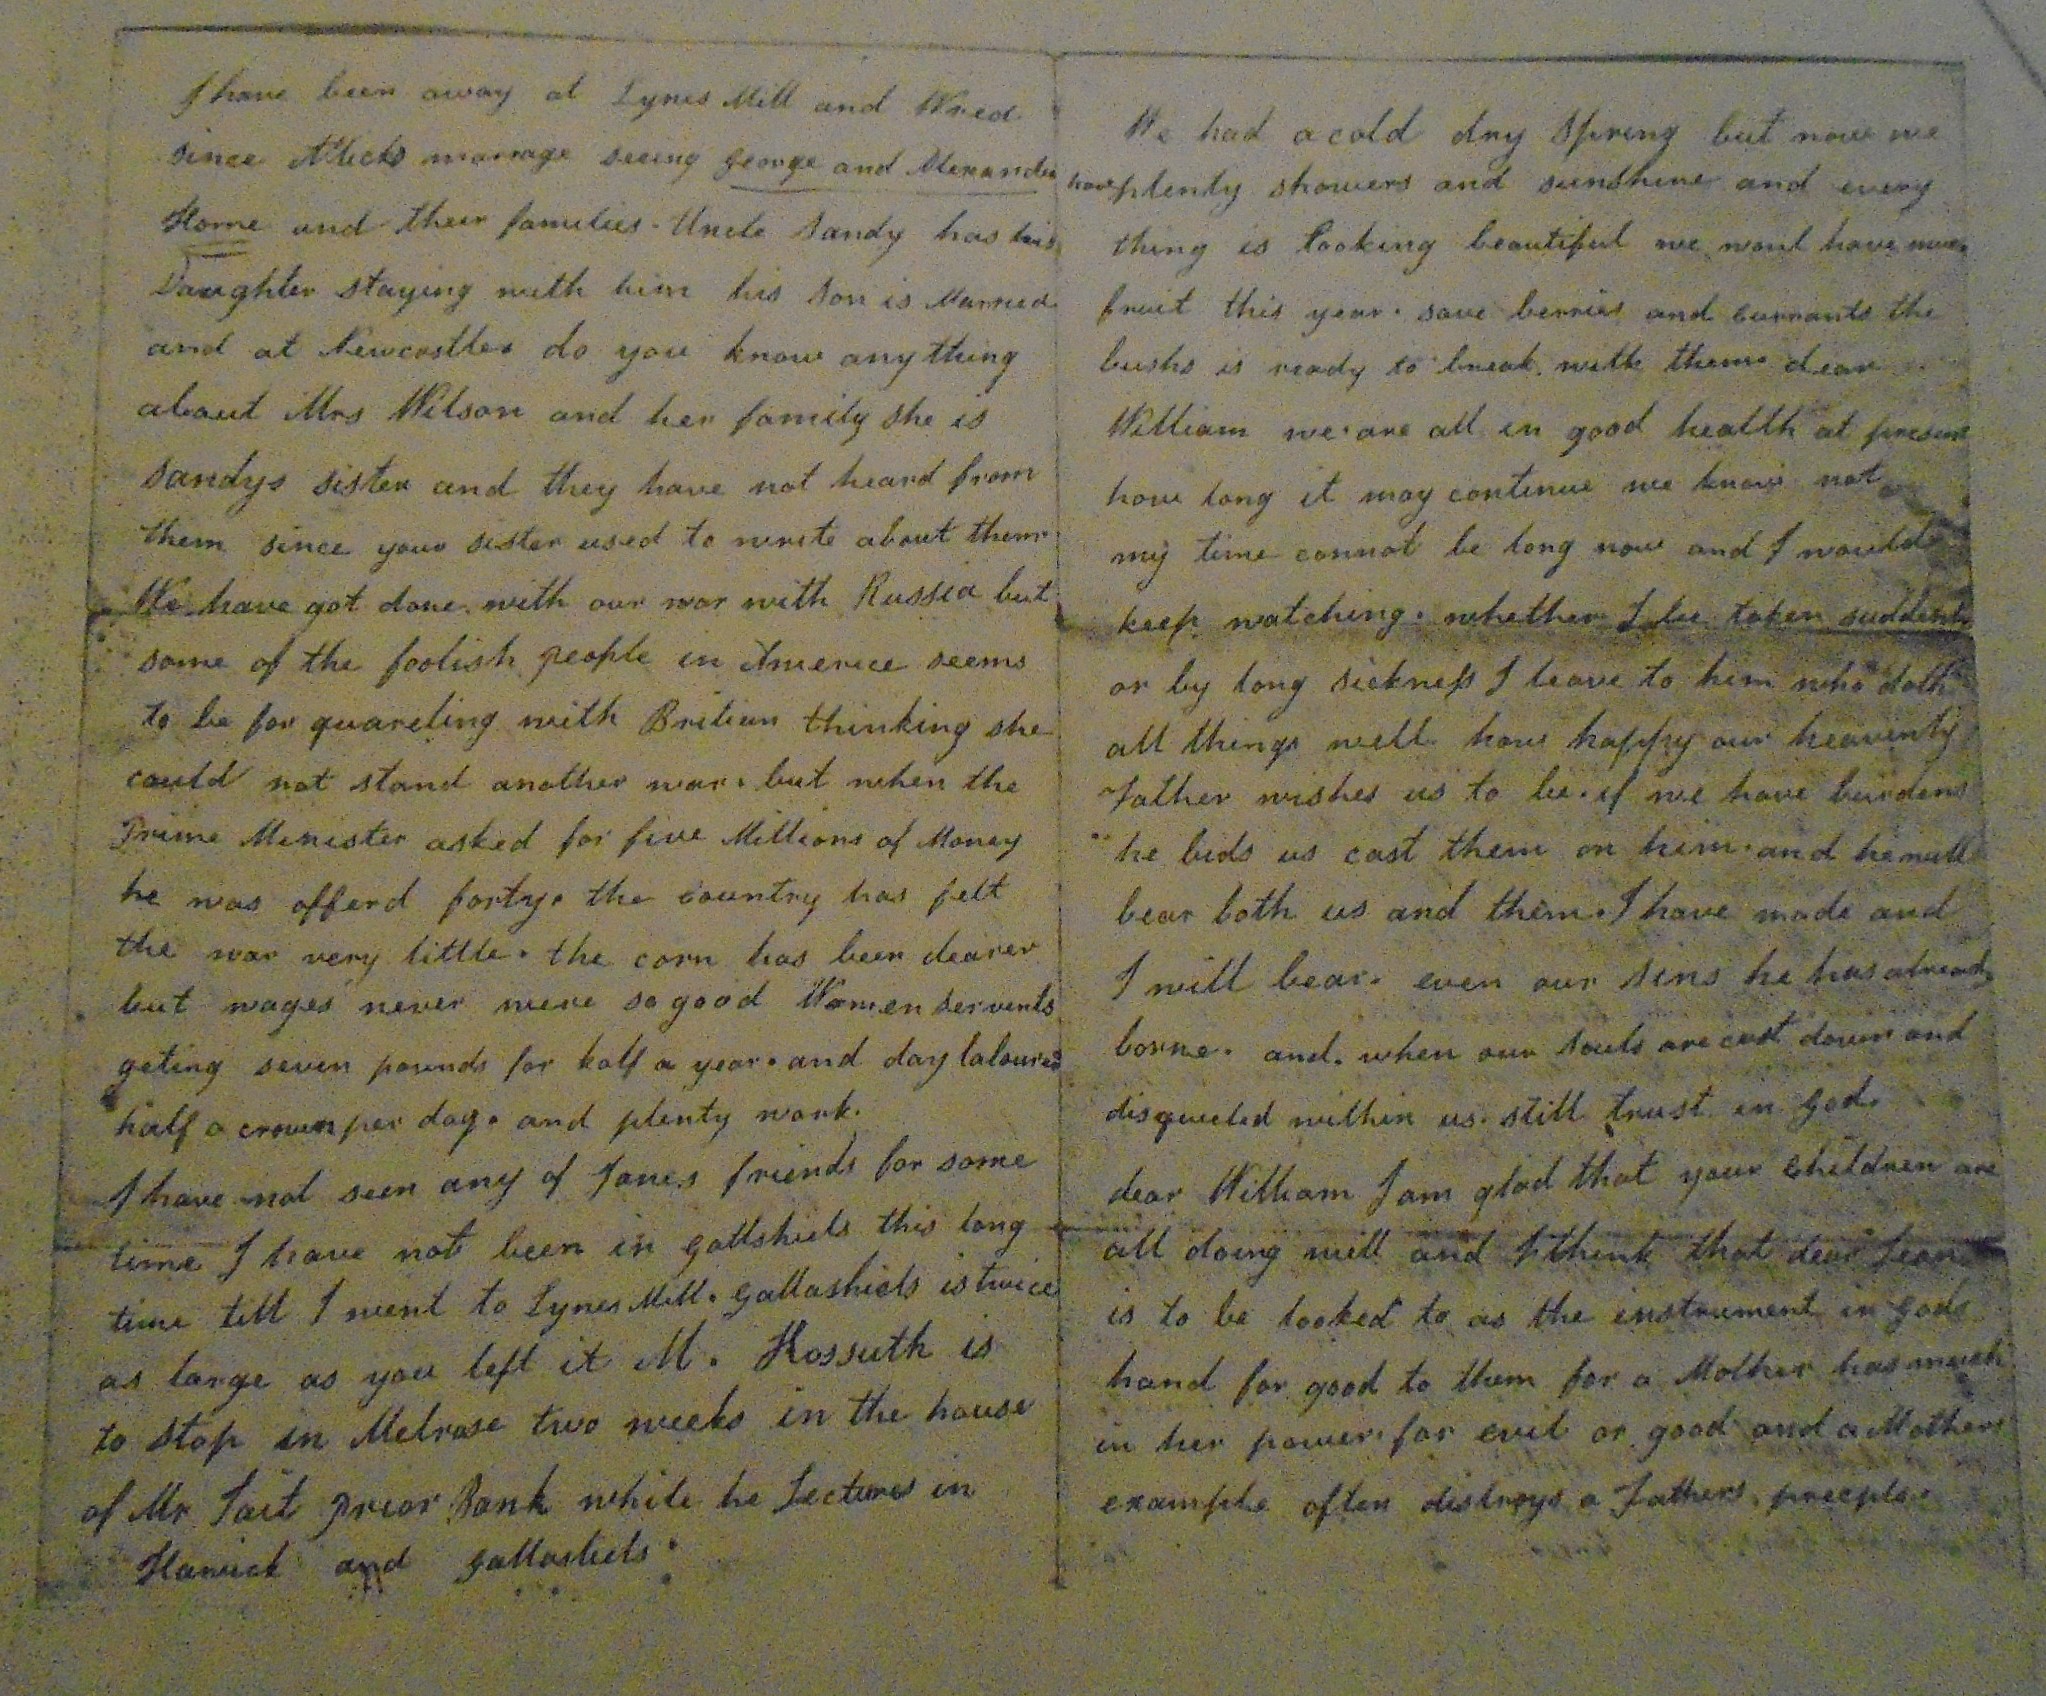 I have been away at Lynes Mill and
since Allicks marrage seeing George and Alexander
Home and their families. Uncle Sandy has his
Daughter staying with him his son is Married
and at Newcastle do you know any thing
about Mrs Wilson and her family she is
Sandys sister and they have not heard from
them since your sister used to write about them.
We have got done with our war with Russia but
some of the foolish people in Americe seems
to be for quareling with Britian thinking she
could not stand another war. but when the
Prime Minister asked for five Millions of Money
he was offerd forty. the country has felt
the war very little. the corn has been dearer
but wages never were so good Women servents
geting seven pounds for half a year. and day laloures
half a crown per day. and plenty work.
I have not seen any of Janes friends for some
time I have not been in gallshiels this long
time till I went to Lynes Mill. gallashiels is twice
as large as you left it M. Kossuth is
to stop in Melrose two weeks in the house
of Mr Tait Prior Bank while he Lectures in
Hawick and gallashiels.
We had a cold dry spring but now we
have plenty showers and sunshine and every
thing is looking beautiful we wont have much
fruit this year. save berries and currants the
bushs is ready to break with them dear
William we are all in good health at present
how long it may continue we know not
my time cannot be long now and I would
keep watching. whether I be taken suddenly
or by long sickness I leave to him who doth
all things well how happy our heavenly
Father wishes us to be. if we have burdens
he bids us cast them on him. and he will
bear both us and them. I have made and
I will bear. even our sins he has already
borne. and. when our souls are cast down and
disquieted within us. still trust in god.
dear William I am glad that your Children are
all doing well and I think that dear Jean
is to be looked to as the instrument in gods
hand for good to them for a Mother has much
in her power. for evil or good and a Mothers
example often distroys a Fathers precepts.